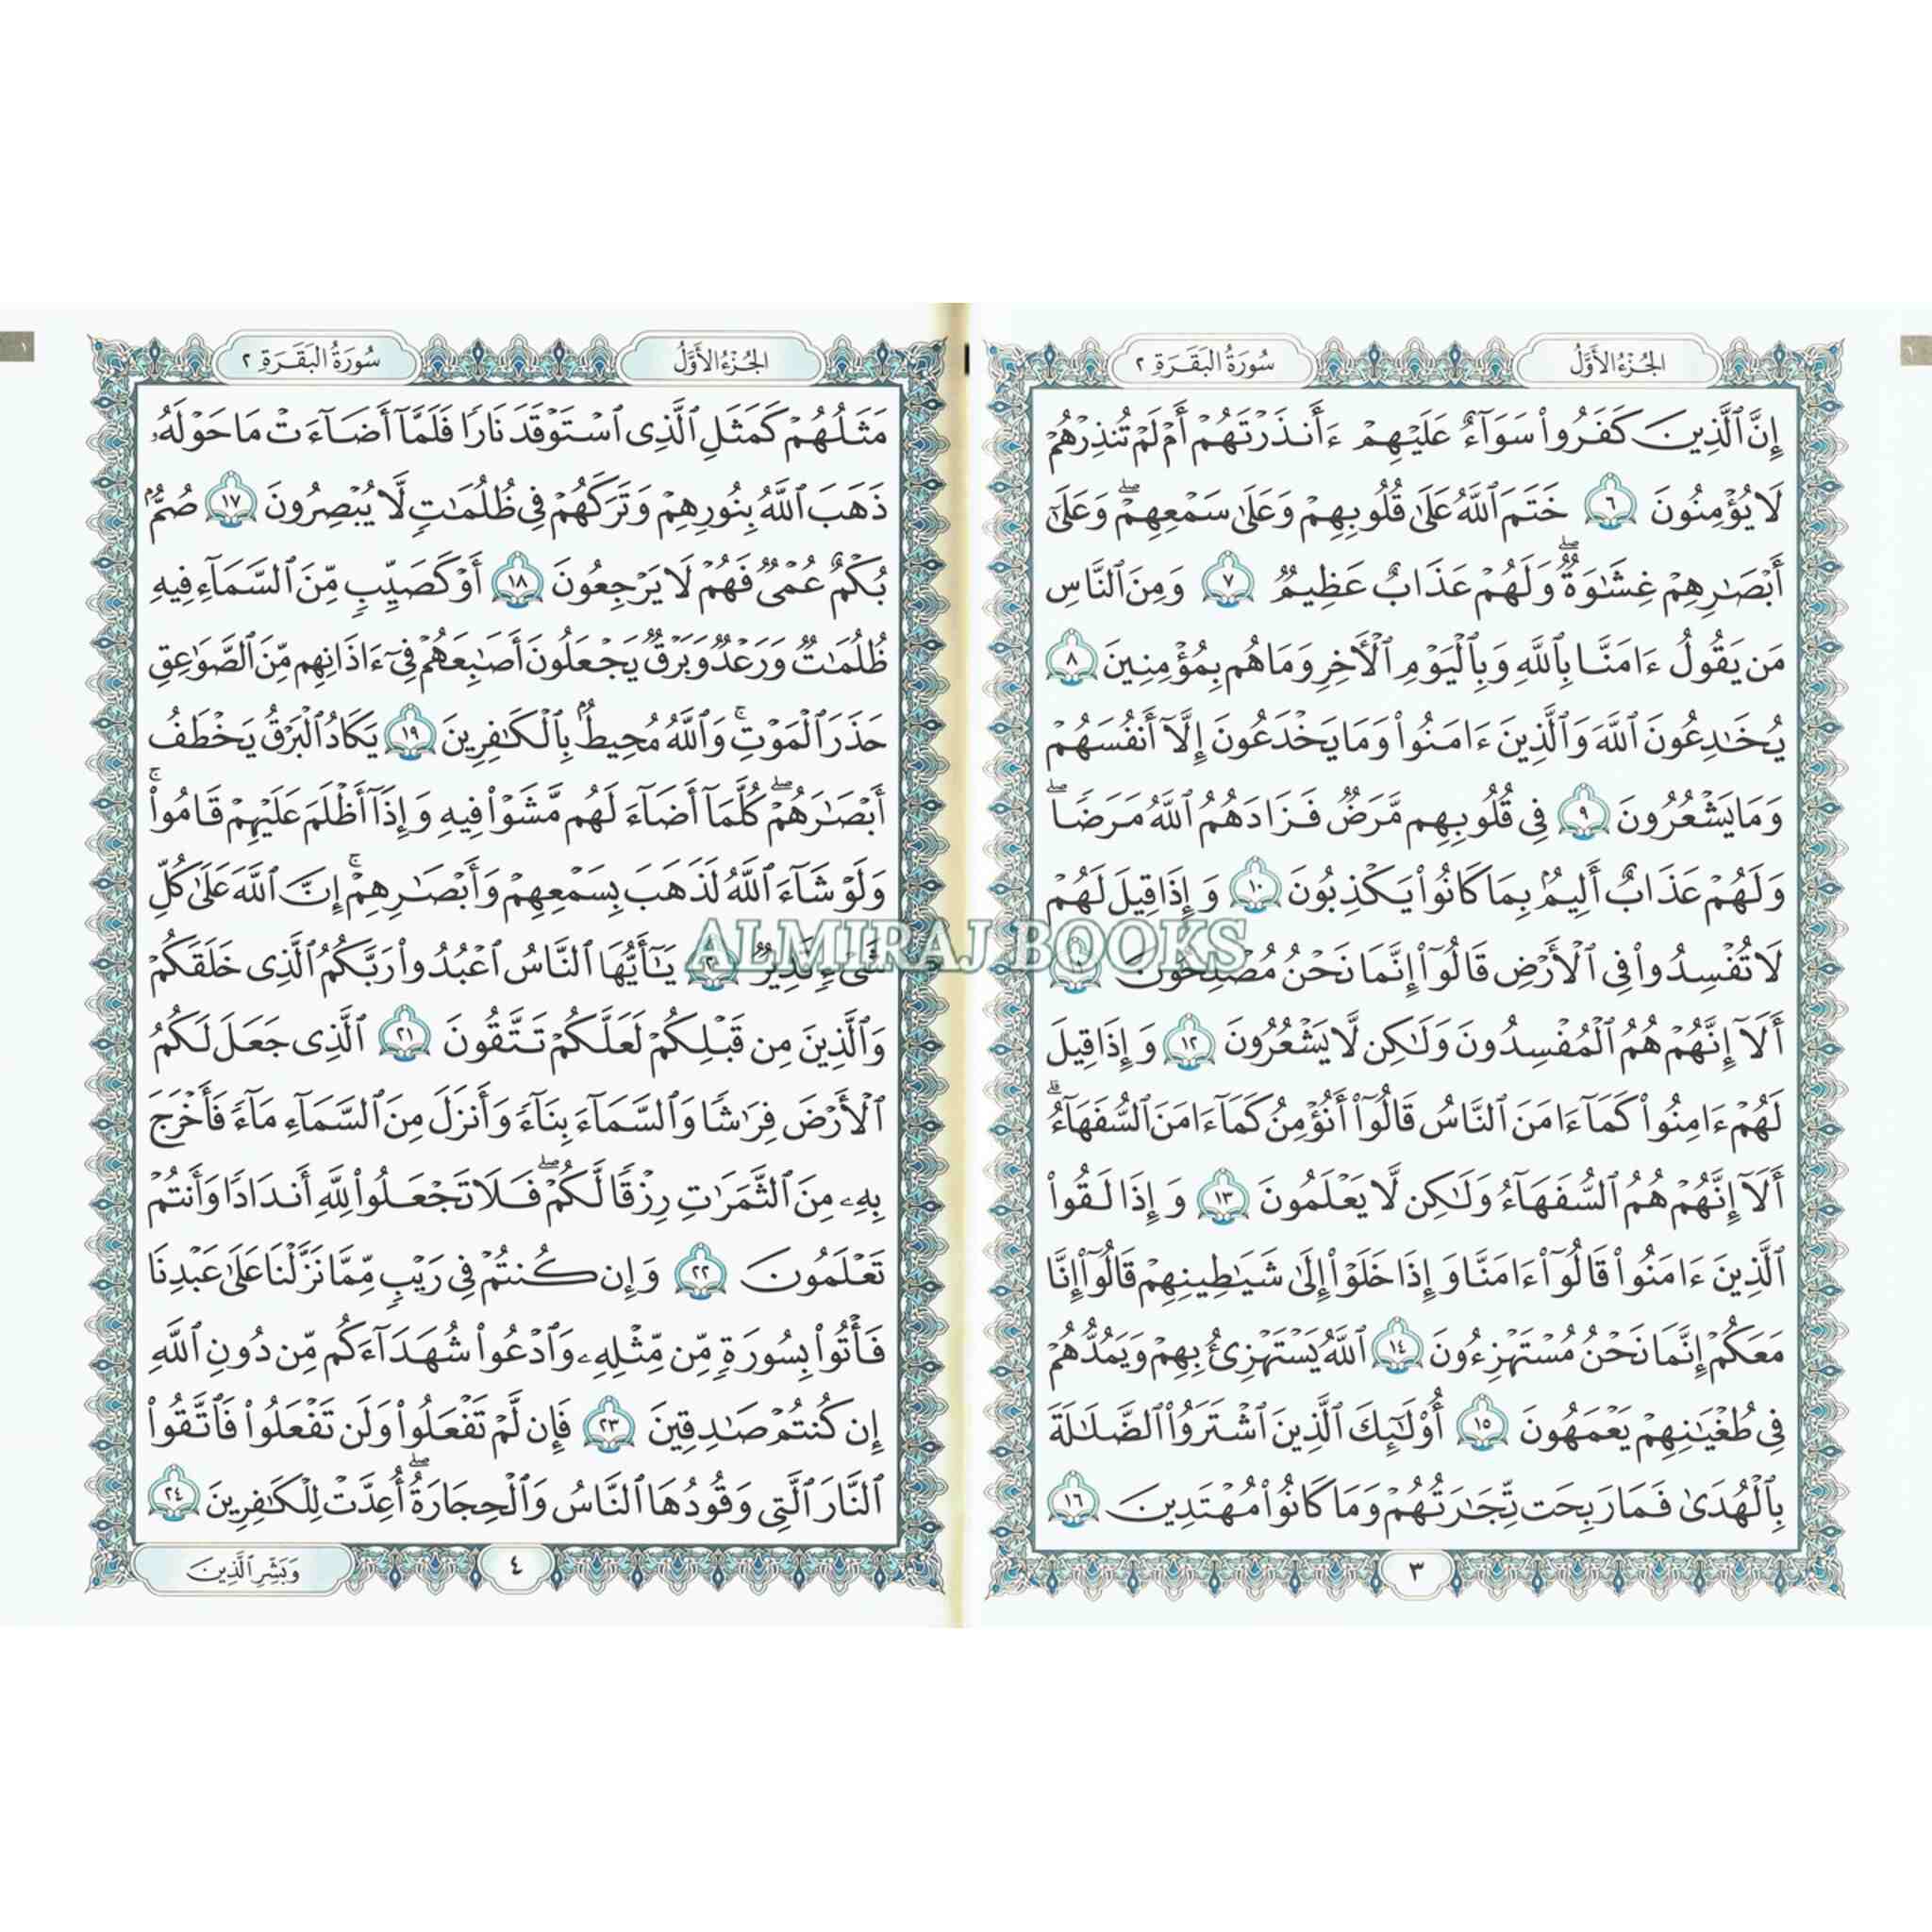 الجزء الأول
سورة البقرة ٢
إِنَّ ٱلَّذِينَ كَفَرُوا۟ سَوَآءٌ عَلَيْهِمْ ءَأَنذَرْتَهُمْ أَمْ لَمْ تُنذِرْهُمْ
لَا يُؤْمِنُونَ ٦ خَتَمَ ٱللَّهُ عَلَىٰ قُلُوبِهِمْ وَعَلَىٰ سَمْعِهِمْ ۖ وَعَلَىٰٓ
أَبْصَـٰرِهِمْ غِشَـٰوَةٌ ۖ وَلَهُمْ عَذَابٌ عَظِيمٌ ٧ وَمِنَ ٱلنَّاسِ
مَن يَقُولُ ءَامَنَّا بِٱللَّهِ وَبِٱلْيَوْمِ ٱلْأَخِرِ وَمَا هُم بِمُؤْمِنِينَ ٨
يُخَـٰدِعُونَ ٱللَّهَ وَٱلَّذِينَ ءَامَنُوا۟ وَمَا يَخْدَعُونَ إِلَّآ أَنفُسَهُمْ
وَمَا يَشْعُرُونَ ٩ فِى قُلُوبِهِم مَّرَضٌ فَزَادَهُمُ ٱللَّهُ مَرَضًا ۖ
وَلَهُمْ عَذَابٌ أَلِيمٌۢ بِمَا كَانُوا۟ يَكْذِبُونَ ١٠ وَإِذَا قِيلَ لَهُمْ
لَا تُفْسِدُوا۟ فِى ٱلْأَرْضِ قَالُوٓا۟ إِنَّمَا نَحْنُ مُصْلِحُونَ ١١
أَلَآ إِنَّهُمْ هُمُ ٱلْمُفْسِدُونَ وَلَـٰكِن لَّا يَشْعُرُونَ ١٢ وَإِذَا قِيلَ
لَهُمْ ءَامِنُوا۟ كَمَآ ءَامَنَ ٱلنَّاسُ قَالُوٓا۟ أَنُؤْمِنُ كَمَآ ءَامَنَ ٱلسُّفَهَآءُ ۗ
أَلَآ إِنَّهُمْ هُمُ ٱلسُّفَهَآءُ وَلَـٰكِن لَّا يَعْلَمُونَ ١٣ وَإِذَا لَقُوا۟
ٱلَّذِينَ ءَامَنُوا۟ قَالُوٓا۟ ءَامَنَّا وَإِذَا خَلَوْا۟ إِلَىٰ شَيَـٰطِينِهِمْ قَالُوٓا۟ إِنَّا
مَعَكُمْ إِنَّمَا نَحْنُ مُسْتَهْزِءُونَ ١٤ ٱللَّهُ يَسْتَهْزِئُ بِهِمْ وَيَمُدُّهُمْ
فِى طُغْيَـٰنِهِمْ يَعْمَهُونَ ١٥ أُو۟لَـٰٓئِكَ ٱلَّذِينَ ٱشْتَرَوُا۟ ٱلضَّلَـٰلَةَ
بِٱلْهُدَىٰ فَمَا رَبِحَت تِّجَـٰرَتُهُمْ وَمَا كَانُوا۟ مُهْتَدِينَ ١٦
٣
الجزء الأول
سورة البقرة ٢
مَثَلُهُمْ كَمَثَلِ ٱلَّذِى ٱسْتَوْقَدَ نَارًا فَلَمَّآ أَضَآءَتْ مَا حَوْلَهُۥ
ذَهَبَ ٱللَّهُ بِنُورِهِمْ وَتَرَكَهُمْ فِى ظُلُمَـٰتٍ لَّا يُبْصِرُونَ ١٧ صُمٌّۢ
بُكْمٌ عُمْىٌ فَهُمْ لَا يَرْجِعُونَ ١٨ أَوْ كَصَيِّبٍ مِّنَ ٱلسَّمَآءِ فِيهِ
ظُلُمَـٰتٌ وَرَعْدٌ وَبَرْقٌ يَجْعَلُونَ أَصَـٰبِعَهُمْ فِىٓ ءَاذَانِهِم مِّنَ ٱلصَّوَٰعِقِ
حَذَرَ ٱلْمَوْتِ ۚ وَٱللَّهُ مُحِيطٌۢ بِٱلْكَـٰفِرِينَ ١٩ يَكَادُ ٱلْبَرْقُ يَخْطَفُ
أَبْصَـٰرَهُمْ ۖ كُلَّمَآ أَضَآءَ لَهُم مَّشَوْا۟ فِيهِ وَإِذَآ أَظْلَمَ عَلَيْهِمْ قَامُوا۟ ۚ
وَلَوْ شَآءَ ٱللَّهُ لَذَهَبَ بِسَمْعِهِمْ وَأَبْصَـٰرِهِمْ ۚ إِنَّ ٱللَّهَ عَلَىٰ كُلِّ
شَىْءٍ قَدِيرٌ ٢٠ يَـٰٓأَيُّهَا ٱلنَّاسُ ٱعْبُدُوا۟ رَبَّكُمُ ٱلَّذِى خَلَقَكُمْ
وَٱلَّذِينَ مِن قَبْلِكُمْ لَعَلَّكُمْ تَتَّقُونَ ٢١ ٱلَّذِى جَعَلَ لَكُمُ
ٱلْأَرْضَ فِرَٰشًا وَٱلسَّمَآءَ بِنَآءً وَأَنزَلَ مِنَ ٱلسَّمَآءِ مَآءً فَأَخْرَجَ
بِهِۦ مِنَ ٱلثَّمَرَٰتِ رِزْقًا لَّكُمْ ۖ فَلَا تَجْعَلُوا۟ لِلَّهِ أَندَادًا وَأَنتُمْ
تَعْلَمُونَ ٢٢ وَإِن كُنتُمْ فِى رَيْبٍ مِّمَّا نَزَّلْنَا عَلَىٰ عَبْدِنَا
فَأْتُوا۟ بِسُورَةٍ مِّن مِّثْلِهِۦ وَٱدْعُوا۟ شُهَدَآءَكُم مِّن دُونِ ٱللَّهِ
إِن كُنتُمْ صَـٰدِقِينَ ٢٣ فَإِن لَّمْ تَفْعَلُوا۟ وَلَن تَفْعَلُوا۟ فَٱتَّقُوا۟
ٱلنَّارَ ٱلَّتِى وَقُودُهَا ٱلنَّاسُ وَٱلْحِجَارَةُ ۖ أُعِدَّتْ لِلْكَـٰفِرِينَ ٢٤
٤
وَبَشِّرِ ٱلَّذِينَ
١
١
ALMIRAJ BOOKS